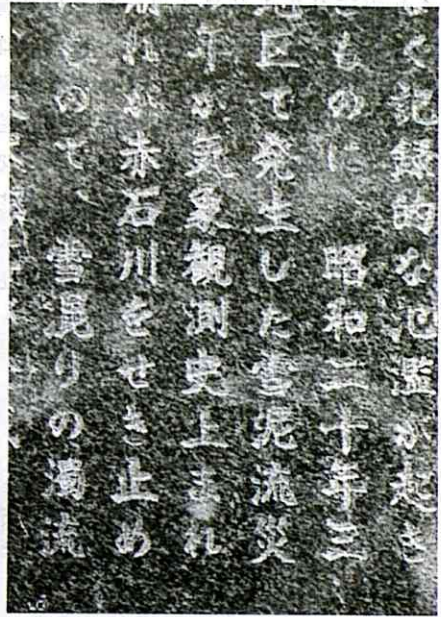 記録的な氾濫が起き
ものに 昭和二十年三
区で発生した雪泥流災
年が気象観測史上まれ
れが赤石川をせき止め
ので、 雪混りの濁流